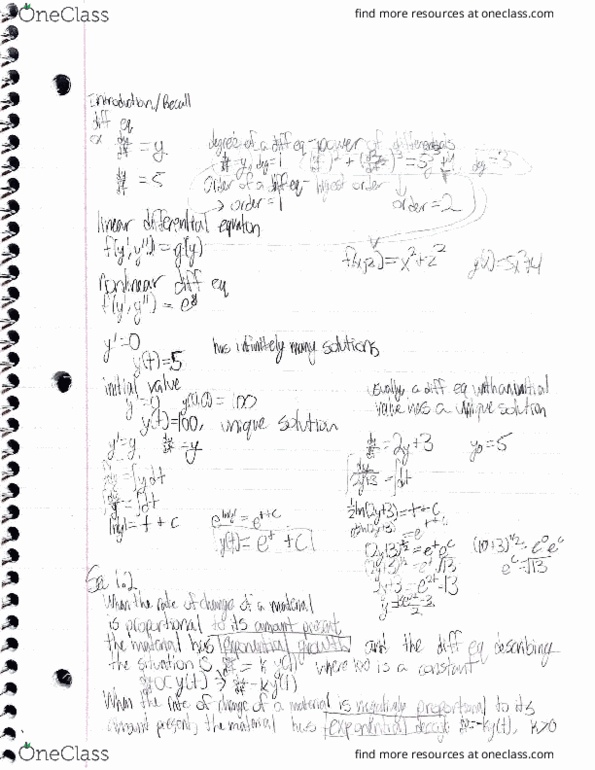 OneClass
find more resources at oneclass.com
Introduction/Recall
diff eq
ex dy/dt = y
degree of a diff eq - power of differentials
dy/dt = y, deg = 1
deg = 3
dy/dt = 5
order of a diff eq - highest order
→ order = 1
order = 2
linear differential equation
f(y', y'') = g(y)
f(x,z) = x²+z²
Nonlinear diff eq
f(y', y'') =
y'=0
has infinitely many solutions
y(t) = 5
initial value
usually a diff eq with an initial
value has a unique solution
y(0) = 100
y(t)=100, unique solution
dy/dt = 2y+3
y0 = 5
y'=y, dy/dt = y
∫dy/2y+3 = ∫dt
= ∫dt
½ln(2y+3) = t+c
ln|y| = t + c
e^ln|y| = e^t+c
y(t) = e^t + C
(2y+3)^½ = e^t e^c
(10+3)^½ = e^0 e^c
(2y+3)^½ = e^t √13
e^c = √13
2y+3 = e^2t · 13
Sec 1.2
When the rate of change of a material
is proportional to its amount present,
the material has exponential growth and the diff eq describing
the situation is, dy/dt = k y(t) where k>0 is a constant
When the rate of change of a material is negatively proportional to its
amount present, the material has exponential decay dy/dt=-ky(t), k>0
OneClass
find more resources at oneclass.com